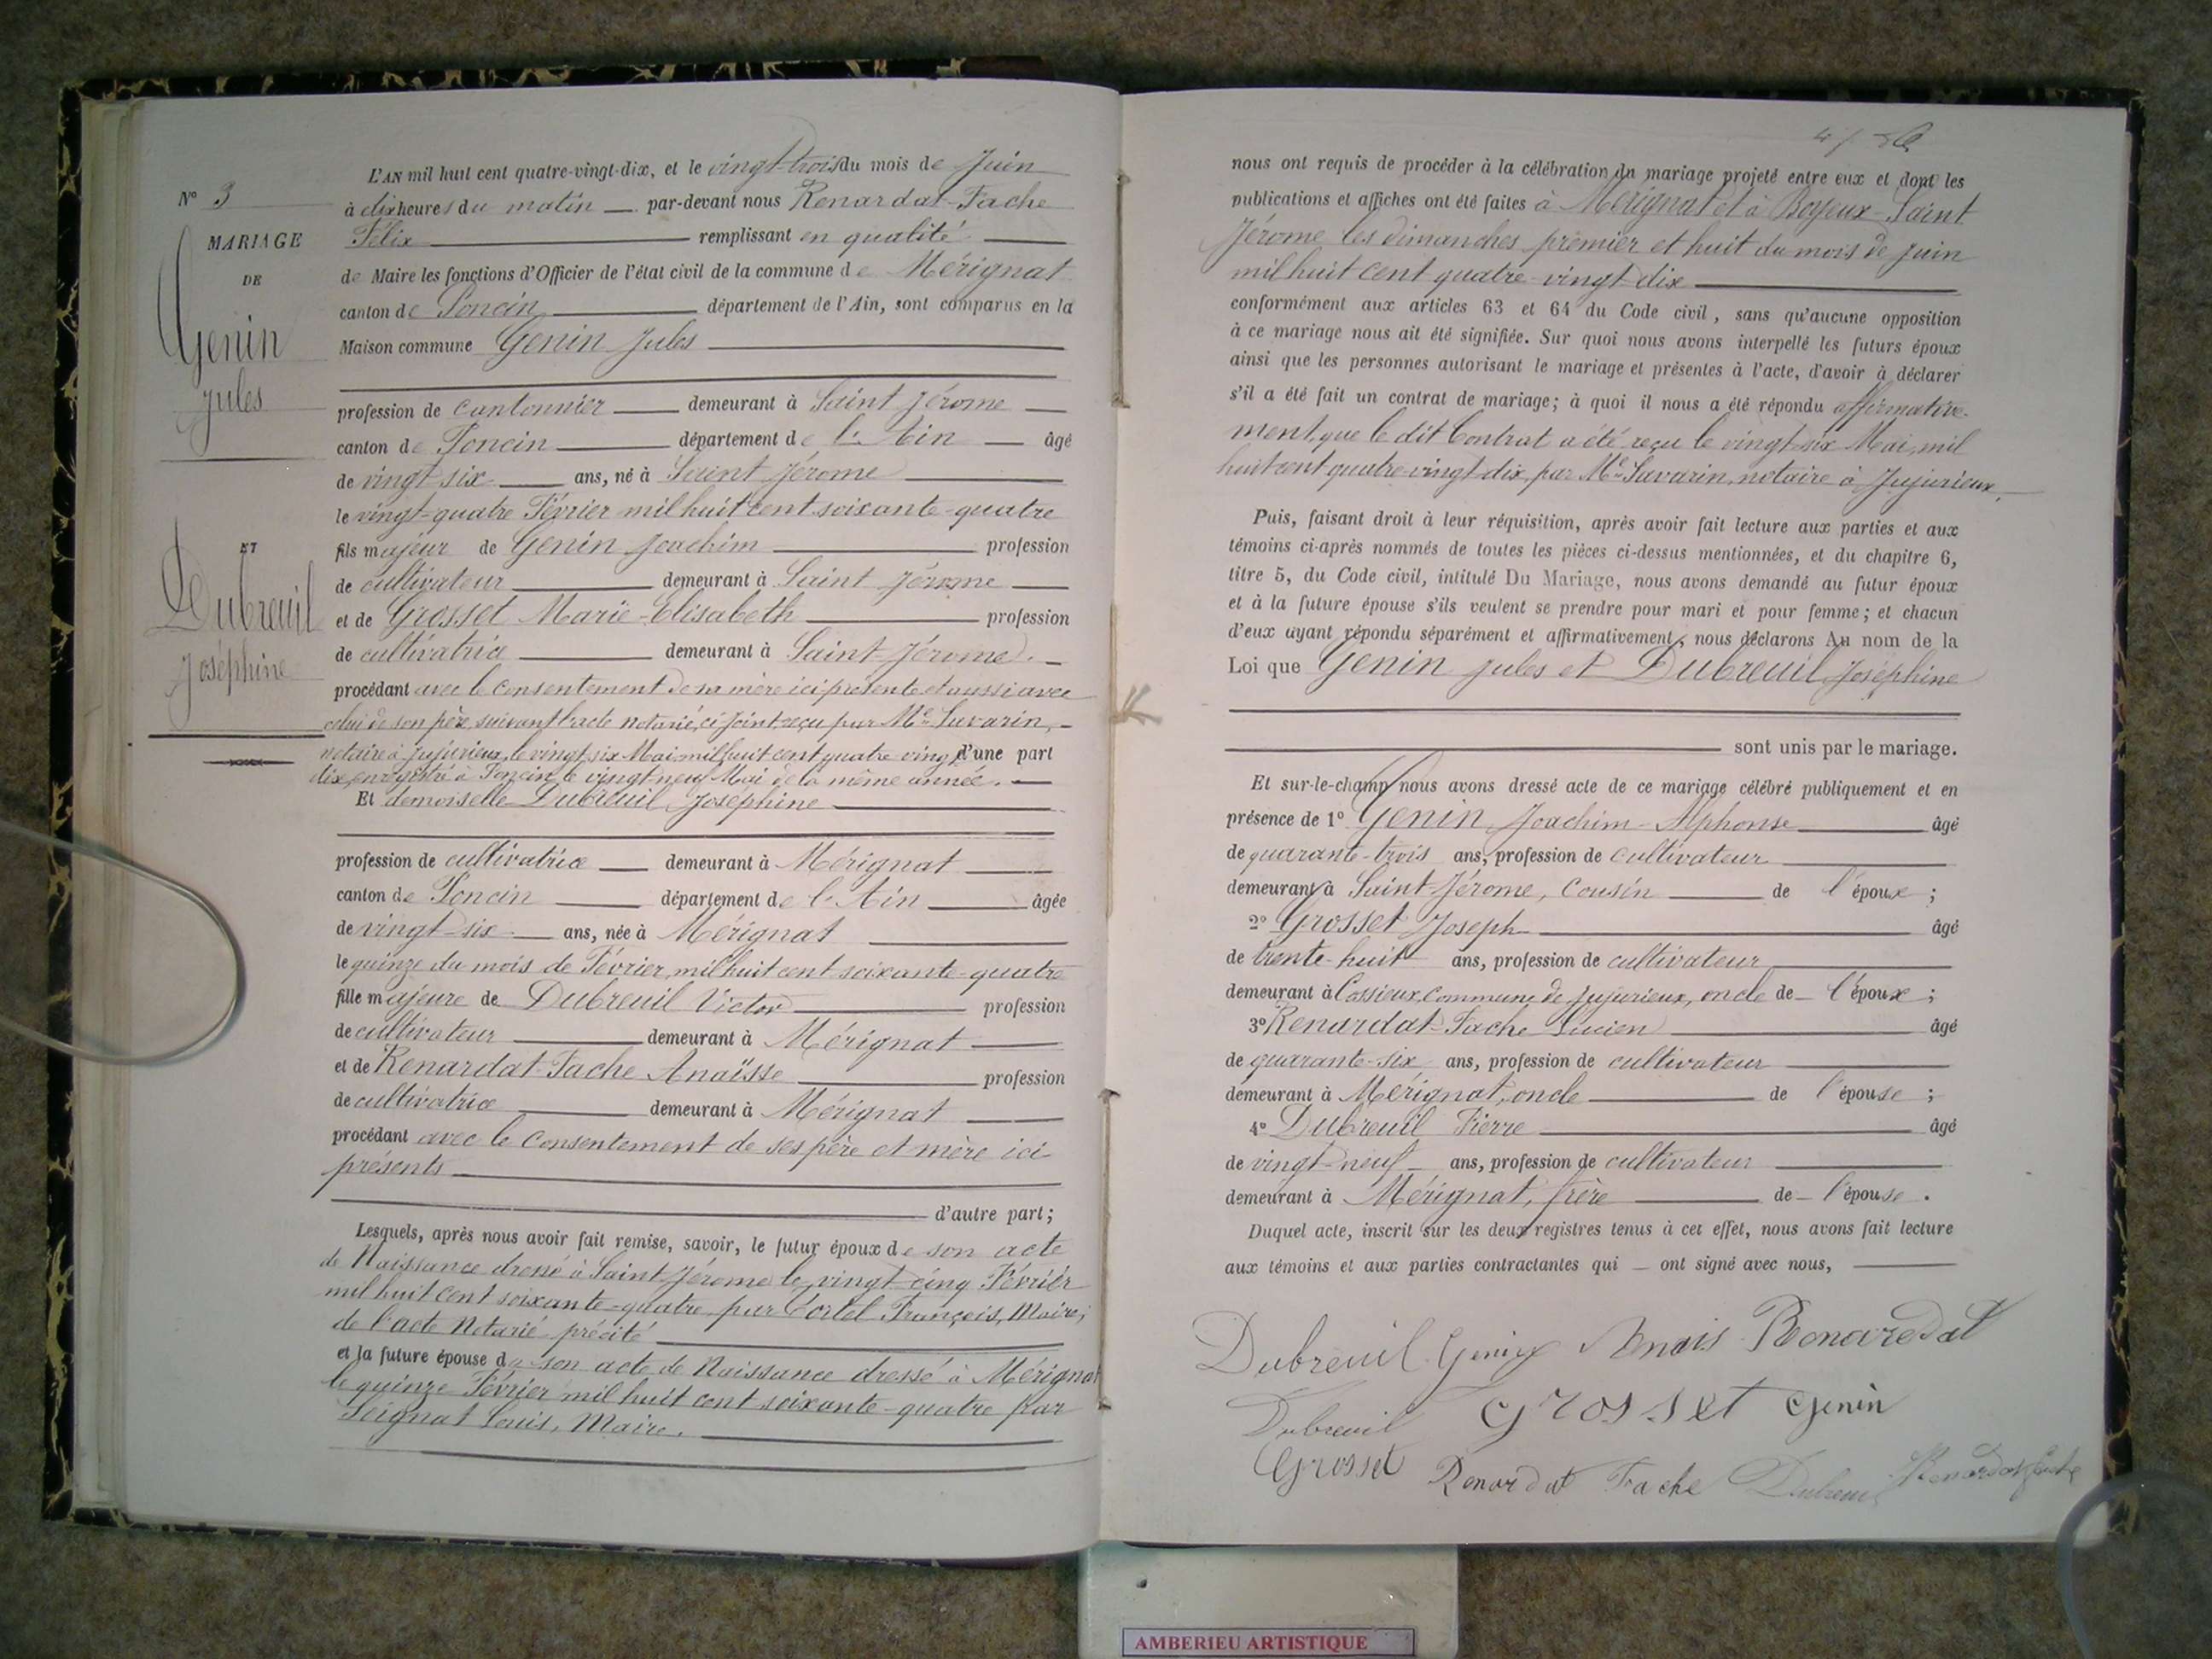 N° 3
MARIAGE
DE
Genin
Jules
ET
Dubreuil
Joséphine
L'AN mil huit cent quatre-vingt-dix, et le vingt-trois du mois de Juin
à dix heures du matin par-devant nous Renardat-Fache
Félix remplissant en qualité
de Maire les fonctions d'Officier de l'état civil de la commune de Mérignat
canton de Poncin département de l'Ain, sont comparus en la
Maison commune Genin Jules
profession de cantonnier demeurant à Saint Jérome
canton de Poncin département de l'Ain âgé
de vingt six ans, né à Saint Jérome
le vingt-quatre Février mil huit cent soixante-quatre
fils majeur de Genin Joachim profession
de cultivateur demeurant à Saint Jérome
et de Grosset Marie-Elisabeth profession
de cultivatrice demeurant à Saint-Jérome.
procédant avec le consentement de sa mère ici présente et aussi avec
celui de son père, suivant l'acte notarié, ci-joint, reçu par Me Savarin,
notaire à Jujurieux, le vingt six Mai mil huit cent quatre vingt d'une part
dix, enregistré à Poncin, le vingt-neuf Mai de la même année.
Et demoiselle Dubreuil Joséphine
profession de cultivatrice demeurant à Mérignat
canton de Poncin département de l'Ain âgée
de vingt-six ans, née à Mérignat
le quinze du mois de Février, mil huit cent soixante-quatre
fille majeure de Dubreuil Victor profession
de cultivateur demeurant à Mérignat
et de Renardat-Fache Anaïsse profession
de cultivatrice demeurant à Mérignat
procédant avec le consentement de ses père et mère ici
présents
d'autre part;
Lesquels, après nous avoir fait remise, savoir, le futur époux de son acte
de Naissance dressé à Saint Jérome le vingt-cinq Février
mil huit cent soixante-quatre par Cortel François, Maire;
de l'acte Notarié précité
et la future épouse de son acte de Naissance dressé à Mérignat
le quinze Février mil huit cent soixante-quatre par
Soignat Louis, Maire.
nous ont requis de procéder à la célébration du mariage projeté entre eux et dont les
publications et affiches ont été faites à Mérignat et à Boyeux-Saint
Jérome les dimanches premier et huit du mois de Juin
mil huit cent quatre-vingt-dix
conformément aux articles 63 et 64 du Code civil, sans qu'aucune opposition
à ce mariage nous ait été signifiée. Sur quoi nous avons interpellé les futurs époux
ainsi que les personnes autorisant le mariage et présentes à l'acte, d'avoir à déclarer
s'il a été fait un contrat de mariage; à quoi il nous a été répondu affirmative-
ment, que le dit Contrat a été reçu le vingt-six Mai, mil
huit cent quatre-vingt-dix, par Me Savarin, notaire à Jujurieux,
Puis, faisant droit à leur réquisition, après avoir fait lecture aux parties et aux
témoins ci-après nommés de toutes les pièces ci-dessus mentionnées, et du chapitre 6,
titre 5, du Code civil, intitulé Du Mariage, nous avons demandé au futur époux
et à la future épouse s'ils veulent se prendre pour mari et pour femme; et chacun
d'eux ayant répondu séparément et affirmativement, nous déclarons Au nom de la
Loi que Genin Jules et Dubreuil Joséphine
sont unis par le mariage.
Et sur-le-champ nous avons dressé acte de ce mariage célébré publiquement et en
présence de 1° Genin Joachim-Alphonse âgé
de quarante-trois ans, profession de cultivateur
demeurant à Saint-Jérome, Cousin de l'époux;
2° Grosset Joseph âgé
de trente-huit ans, profession de cultivateur
demeurant à Cossieux, commune de Jujurieux, oncle de l'époux;
3° Renardat-Fache Lucien âgé
de quarante-six ans, profession de cultivateur
demeurant à Mérignat, oncle de l'épouse;
4° Dubreuil Pierre âgé
de vingt-neuf ans, profession de cultivateur
demeurant à Mérignat, frère de l'épouse.
Duquel acte, inscrit sur les deux registres tenus à cet effet, nous avons fait lecture
aux témoins et aux parties contractantes qui ont signé avec nous,
Dubreuil Genin Anais Renardat
Dubreuil Grosset Genin
Grosset Renardat Fache Dubreuil Renardat Fache
AMBERIEU ARTISTIQUE